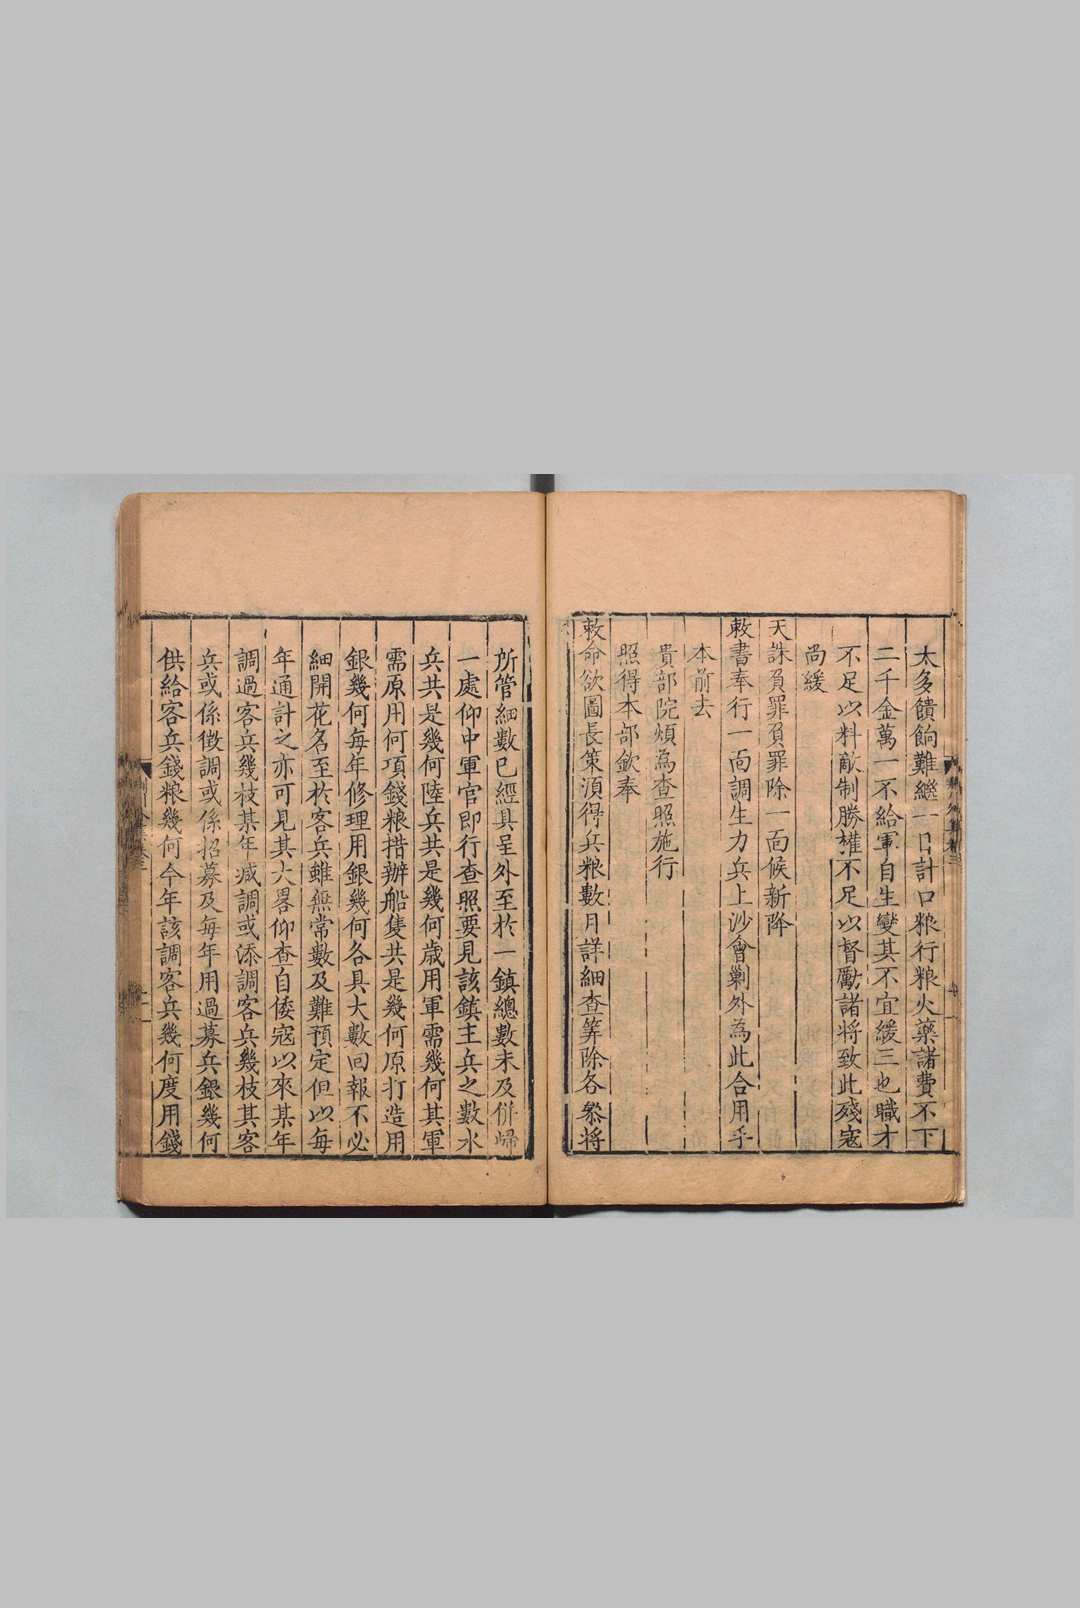 太多饋餉難繼一日計口粮行粮火藥諸費不下
二千金萬一不給軍自生變其不宜緩三也職才
不足以料敵制勝權不足以督勵諸将致此殘寇
尚緩
天誅負罪負罪除一面候新降
敕書奉行一面調生力兵上沙會剿外為此合用手
本前去
貴部院煩為查照施行
照得本部欽奉
敕命欲圖長策湏得兵粮數月詳細查筭除各叅将
所管細數已經具呈外至扵一鎮總數未及併歸
一處仰中軍官即行查照要見該鎮主兵之數水
兵共是幾何陸兵共是幾何歳用軍需幾何其軍
需原用何項錢粮措辦船隻共是幾何原打造用
銀幾何每年修理用銀幾何各具大數回報不必
細開花名至扵客兵雖無常數及難預定但以每
年通計之亦可見其大畧仰查自倭寇以來某年
調過客兵幾枝某年减調或添調客兵幾枝其客
兵或係徴調或係招募及每年用過募兵銀幾何
供給客兵錢粮幾何今年該調客兵幾何度用錢